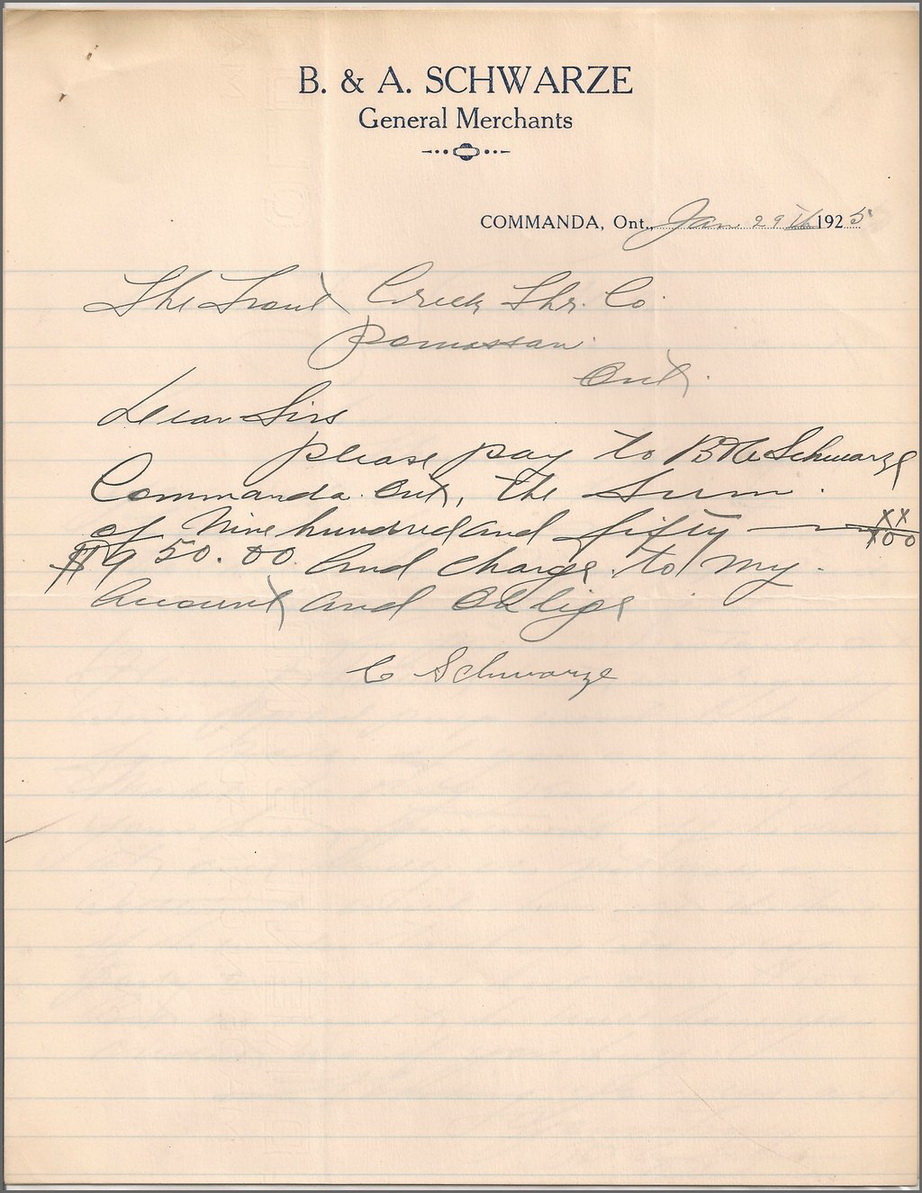 B. & A. SCHWARZE
General Merchants
COMMANDA, Ont., Jan 29th 1925
The Trout Creek Thr. Co.
Powassan
Ont.
Dear Sirs
please pay to B & A Schwarze
Commanda Ont, the Sum
of Nine hundred and fifty — xx/100
$950.00 and charge to my
account and Oblige
C Schwarze